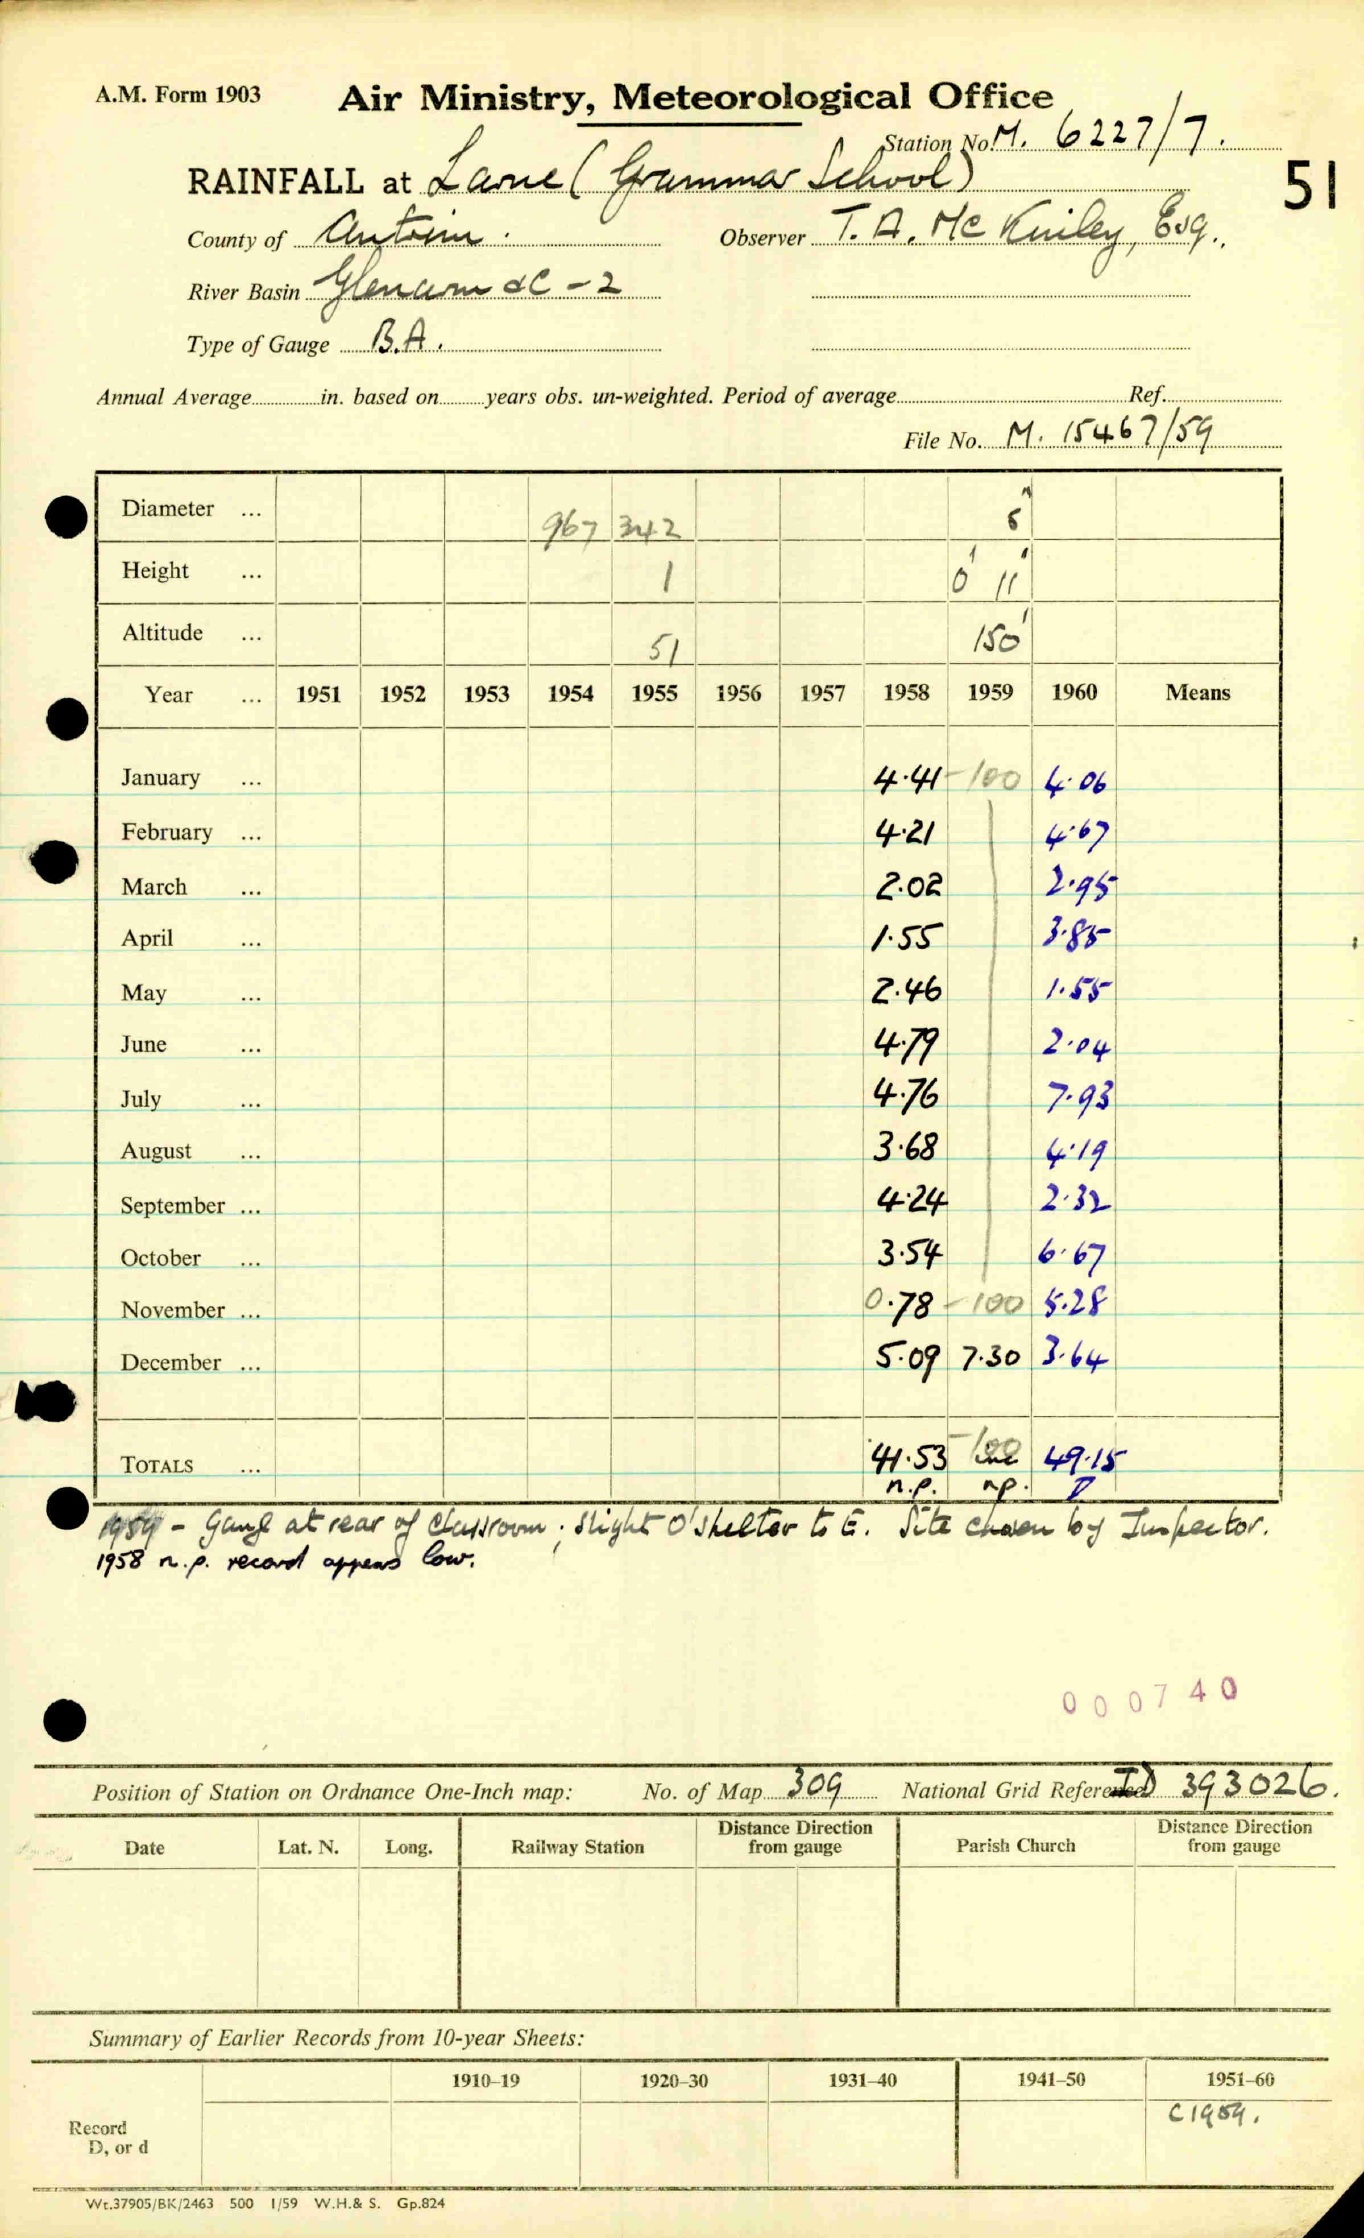 A.M. Form 1903 Air Ministry, Meteorological Office
Station No. M. 6227/7.
RAINFALL at Larne (Grammar School) 51
County of Antrim. Observer T. A. Mc Kinley, Esq.,
River Basin Glenarm &C - 2
Type of Gauge B.A.
Annual Average in. based on years obs. un-weighted. Period of average Ref.
File No. M. 15467/59
Diameter ... 967 342 5"
Height ... 1 0' 11"
Altitude ... 51 150'
Year ... 1951 1952 1953 1954 1955 1956 1957 1958 1959 1960 Means
January ... 4.41 -100 4.06
February ... 4.21 4.67
March ... 2.02 2.95
April ... 1.55 3.85
May ... 2.46 1.55
June ... 4.79 2.04
July ... 4.76 7.93
August ... 3.68 4.19
September ... 4.24 2.32
October ... 3.54 6.67
November ... 0.78 -100 5.28
December ... 5.09 7.30 3.64
TOTALS ... 41.53 -100 49.15
n.p. np. D
1959 - Gauge at rear of classroom; slight O'shelter to E. Site chosen by Inspector.
1958 n.p. record appears low.
000740
Position of Station on Ordnance One-Inch map: No. of Map 309 National Grid Reference ID 393026.
Date Lat. N. Long. Railway Station Distance Direction from gauge Parish Church Distance Direction from gauge
Summary of Earlier Records from 10-year Sheets:
1910–19 1920–30 1931–40 1941–50 1951–60
Record C1959.
D, or d
Wt.37905/BK/2463 500 1/59 W.H.& S. Gp.824